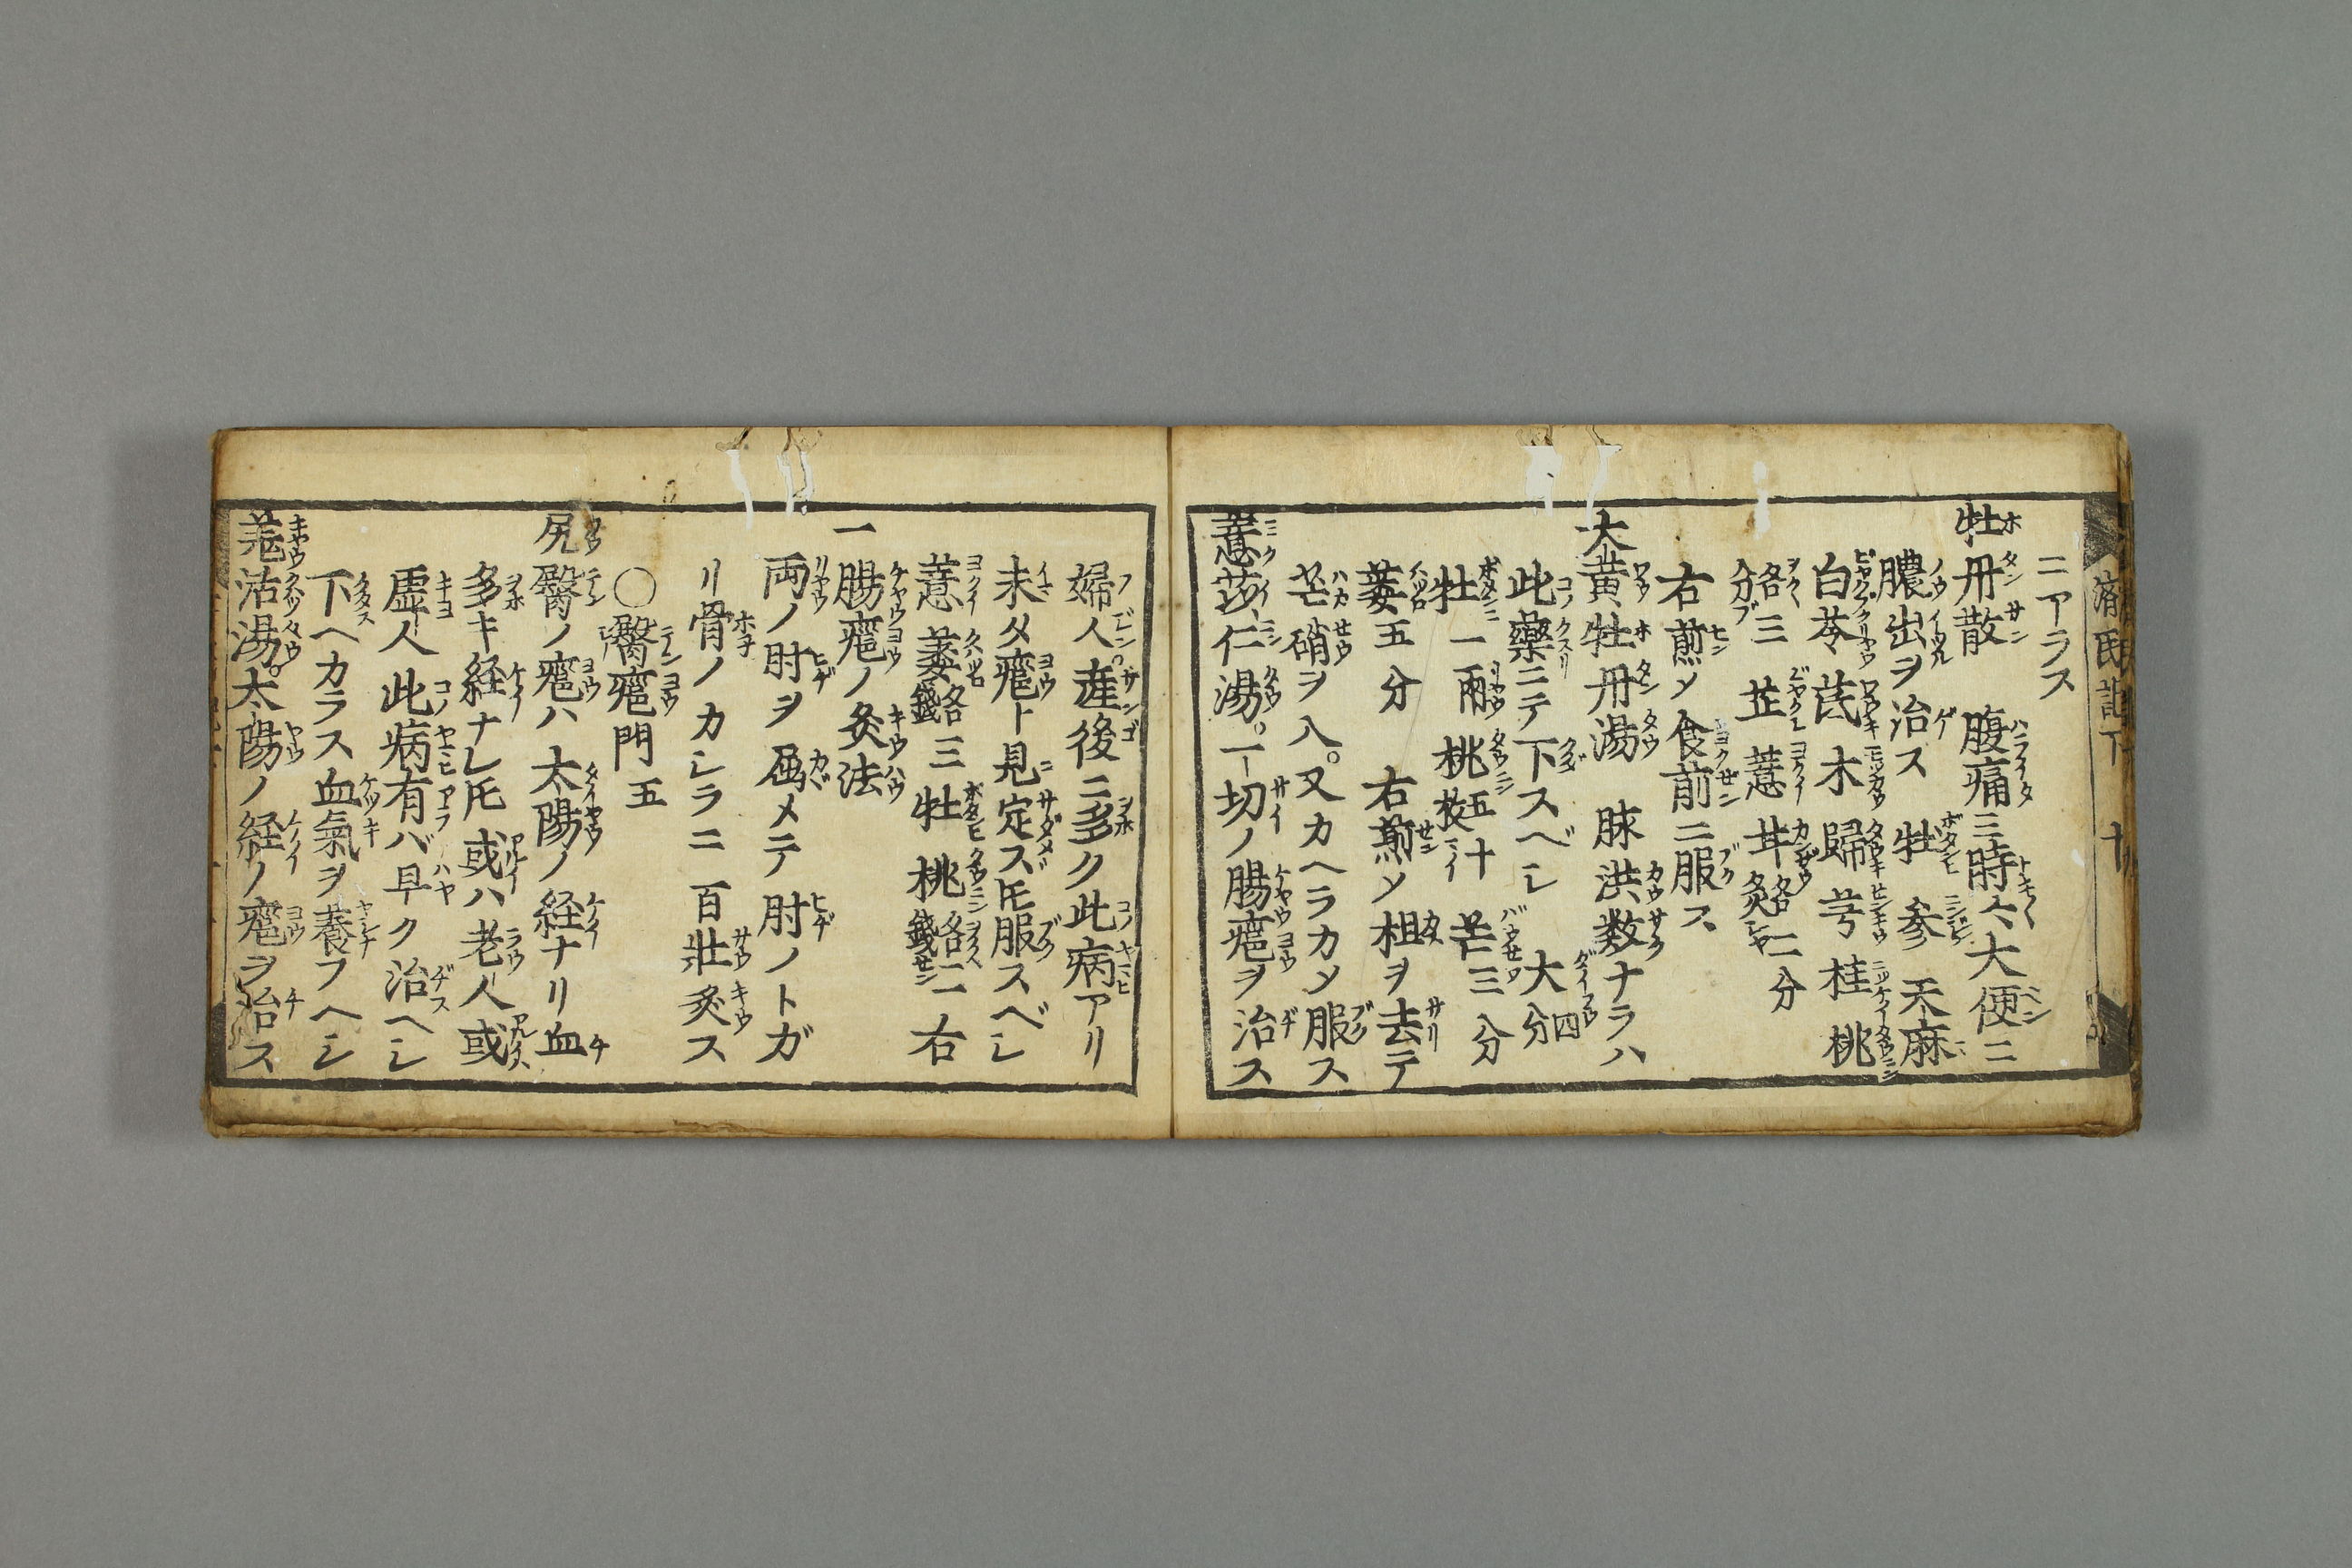 ニアラス
牡丹散 腹痛三時々大便ニ
膿出ヲ治ス 牡 参 天麻
白苓 芪 木 歸 芎 桂 桃
各三分 芷 薏 甘各炙二分
右煎〆食前ニ服ス
大黄牡丹湯 脉洪数ナラハ
此藥ニテ下スベシ 大四分
牡一兩 桃五十枚 芒三分
蔞五分 右煎〆柤ヲ去テ
芒硝ヲ入。又カヘラカ〆服ス
薏苡仁湯。一切ノ腸癰ヲ治ス
婦人産後ニ多ク此病アリ
未タ癰ト見定スモ服スベシ
薏 蔞各三錢 牡 桃各二錢 右
一腸癰ノ灸法
両ノ肘ヲ屈メテ肘ノトガ
リ骨ノカシラニ百壯灸ス
○臀癰門五
尻臀ノ癰ハ太陽ノ経ナリ血
多キ経ナレ𪜈或ハ老人或
虚人此病有バ早ク治ヘシ
下ヘカラス血氣ヲ養フヘシ
羌活湯。太陽ノ経ノ癰ヲ治ス